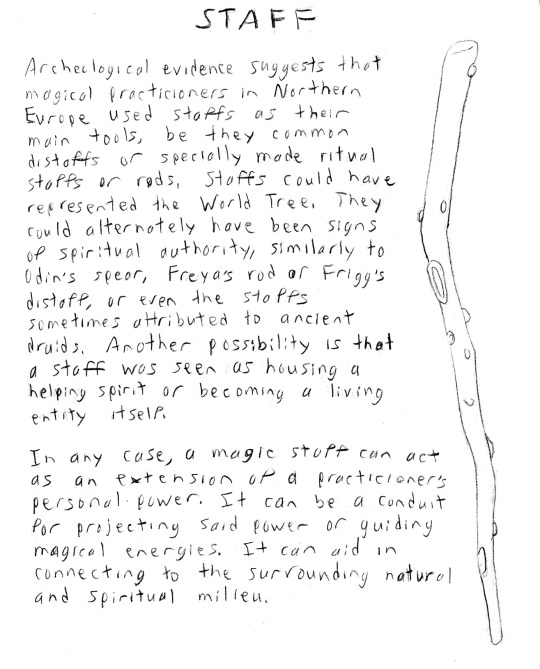 STAFF
Archeological evidence suggests that
magical practicioners in Northern
Europe used staffs as their
main tools, be they common
distaffs or specially made ritual
staffs or rods. Staffs could have
represented the World Tree. They
could alternately have been signs
of spiritual authority, similarly to
Odin's spear, Freya's rod or Frigg's
distaff, or even the staffs
sometimes attributed to ancient
druids. Another possibility is that
a staff was seen as housing a
helping spirit or becoming a living
entity itself.
In any case, a magic staff can act
as an extension of a practicioner's
personal power. It can be a conduit
for projecting said power or guiding
magical energies. It can aid in
connecting to the surrounding natural
and spiritual milieu.